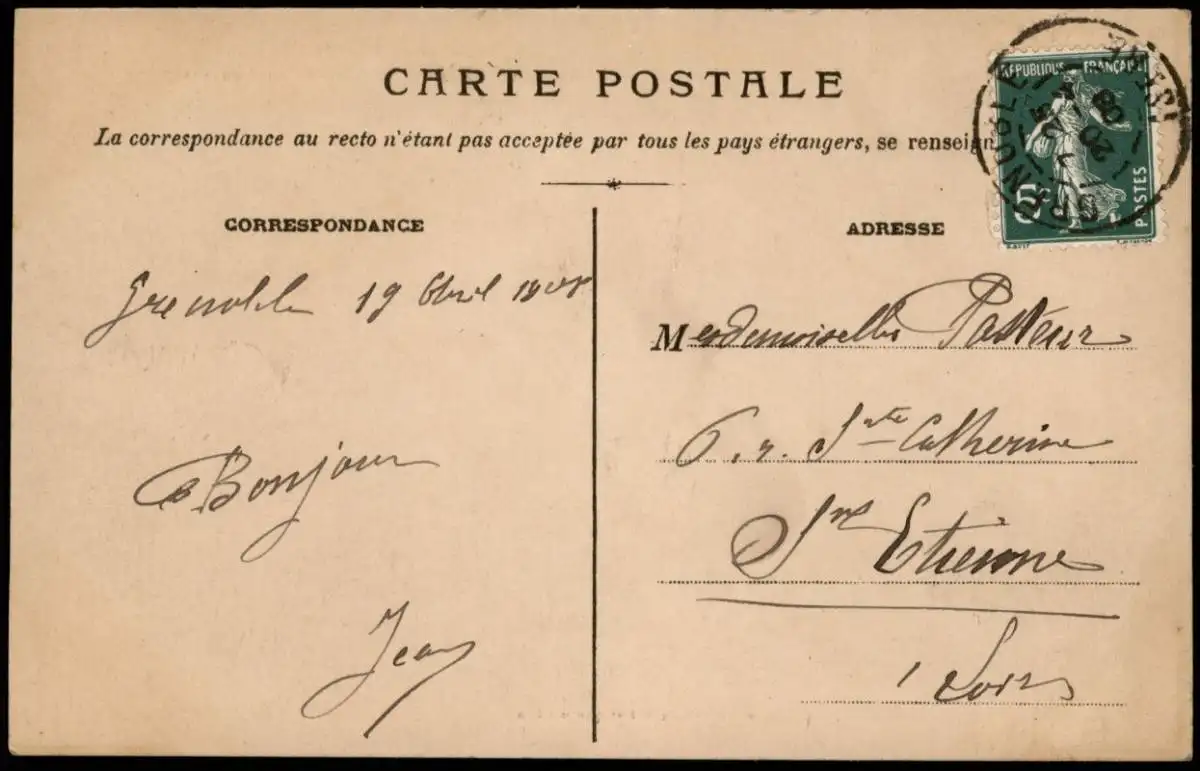 CARTE POSTALE
La correspondance au recto n'étant pas acceptée par tous les pays étrangers, se renseign
RÉPUBLIQUE FRANÇAISE
POSTES
5
GRENOBLE
ISÈRE
20
08
CORRESPONDANCE
Grenoble 19 Avril 1908
Bonjour
Jean
ADRESSE
Mesdemoiselles Pasteur
6. r. Ste Catherine
St Etienne
Loire